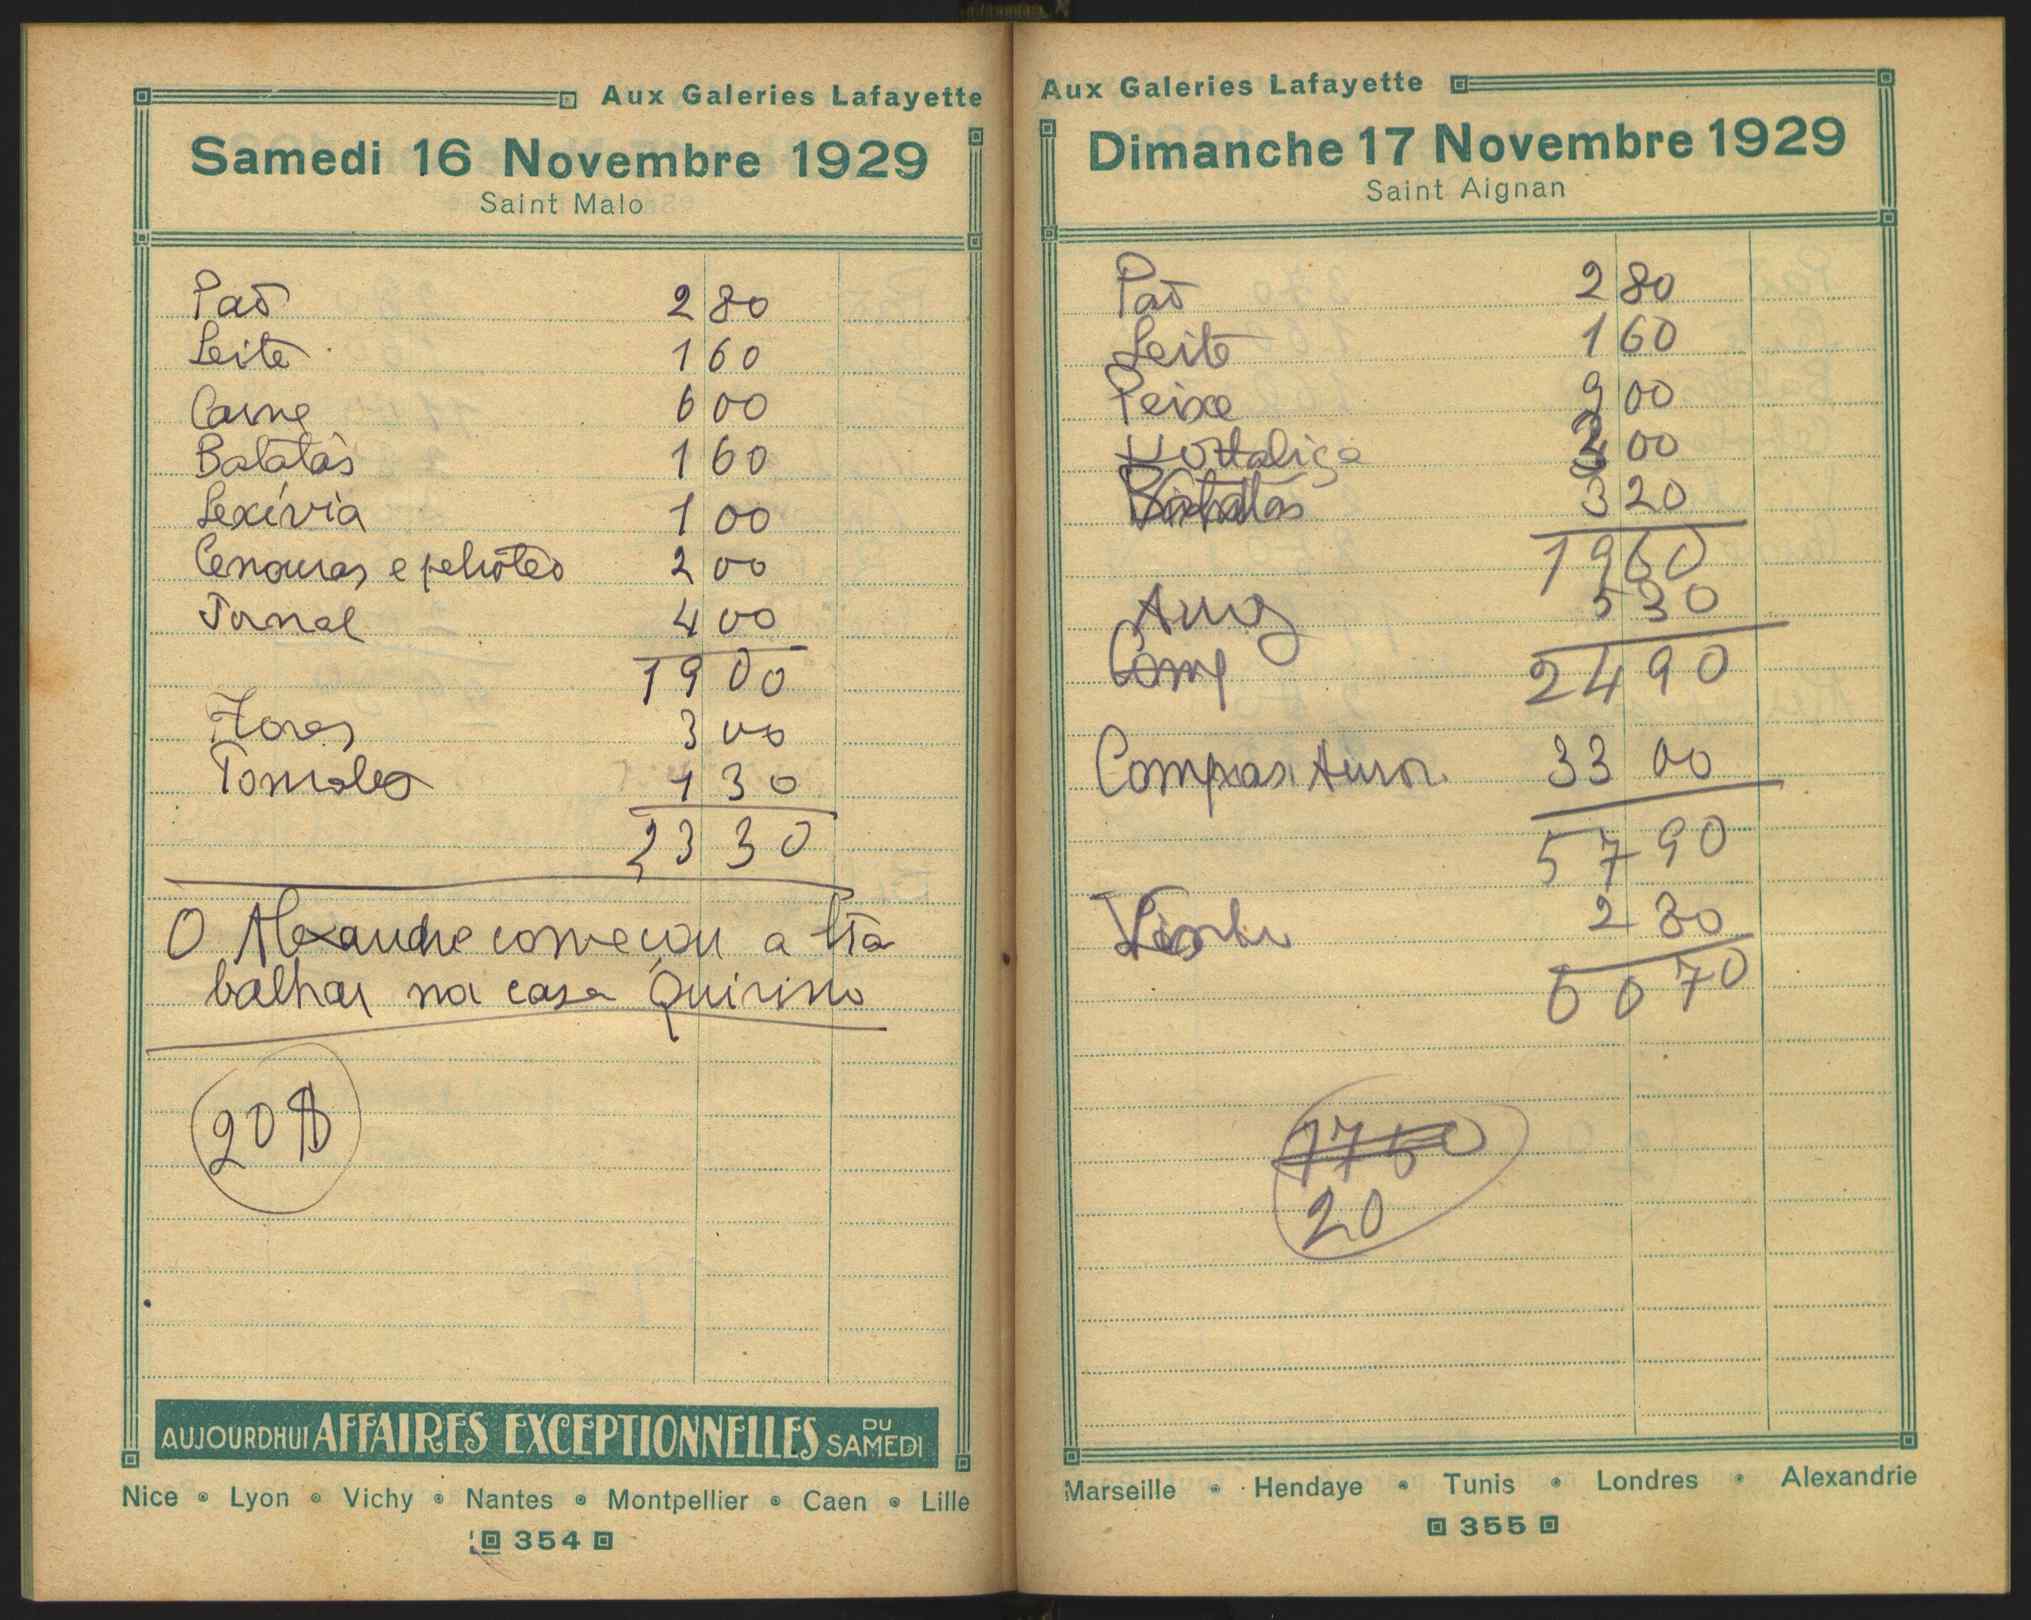 Aux Galeries Lafayette
Samedi 16 Novembre 1929
Saint Malo
Pão 2 80
Leite 1 60
Carne 6 00
Batatas 1 60
Lexívia 1 00
Cenouras e 2 00
Jornal 4 00
19 00
Flores 3 00
Tomates 1 30
23 30
O Alexandre começou a tra
balhar na casa Quirino
20$
AUJOURDHUI AFFAIRES EXCEPTIONNELLES DU SAMEDI
Nice • Lyon • Vichy • Nantes • Montpellier • Caen • Lille
354
Aux Galeries Lafayette
Dimanche 17 Novembre 1929
Saint Aignan
Pão 2 80
Leite 1 60
Peixe 9 00
Hortaliça 00
Batatas 3 20
19 60
5 30
24 90
Compras 33 00
57 90
2 80
60 70
1760
20
Marseille • Hendaye • Tunis • Londres • Alexandrie
355